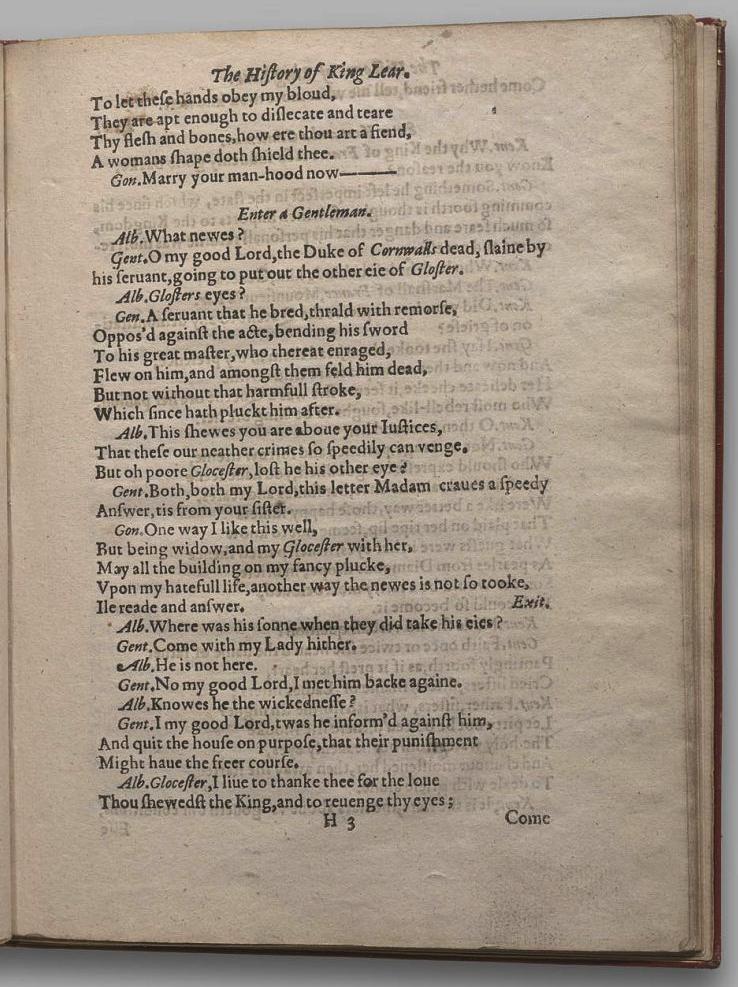 The Hiſtory of King Lear.
To let theſe hands obey my bloud,
They are apt enough to diſlecate and teare
Thy fleſh and bones,how ere thou art a fiend,
A womans ſhape doth ſhield thee.
Gon.Marry your man-hood now———
Enter a Gentleman.
Alb.What newes?
Gent.O my good Lord,the Duke of Cornwalls dead, ſlaine by
his ſeruant,going to put out the other eie of Gloſter.
Alb.Gloſters eyes?
Gen.A ſeruant that he bred,thrald with remorſe,
Oppos'd againſt the acte,bending his ſword
To his great maſter,who thereat enraged,
Flew on him,and amongſt them feld him dead,
But not without that harmfull ſtroke,
Which ſince hath pluckt him after.
Alb.This ſhewes you are aboue your Iuſtices,
That theſe our neather crimes ſo ſpeedily can venge.
But oh poore Gloceſter,loſt he his other eye?
Gent.Both,both my Lord,this letter Madam craues a ſpeedy
Anſwer,tis from your ſiſter.
Gon.One way I like this well,
But being widow,and my Gloceſter with her,
May all the building on my fancy plucke,
Vpon my hatefull life,another way the newes is not ſo tooke,
Ile reade and anſwer. Exit.
Alb.Where was his ſonne when they did take his eies?
Gent.Come with my Lady hither.
Alb.He is not here.
Gent.No my good Lord,I met him backe againe.
Alb.Knowes he the wickedneſſe?
Gent.I my good Lord,twas he inform'd againſt him,
And quit the houſe on purpoſe,that their puniſhment
Might haue the freer courſe.
Alb.Gloceſter,I liue to thanke thee for the loue
Thou ſhewedſt the King,and to reuenge thy eyes;
H 3 Come